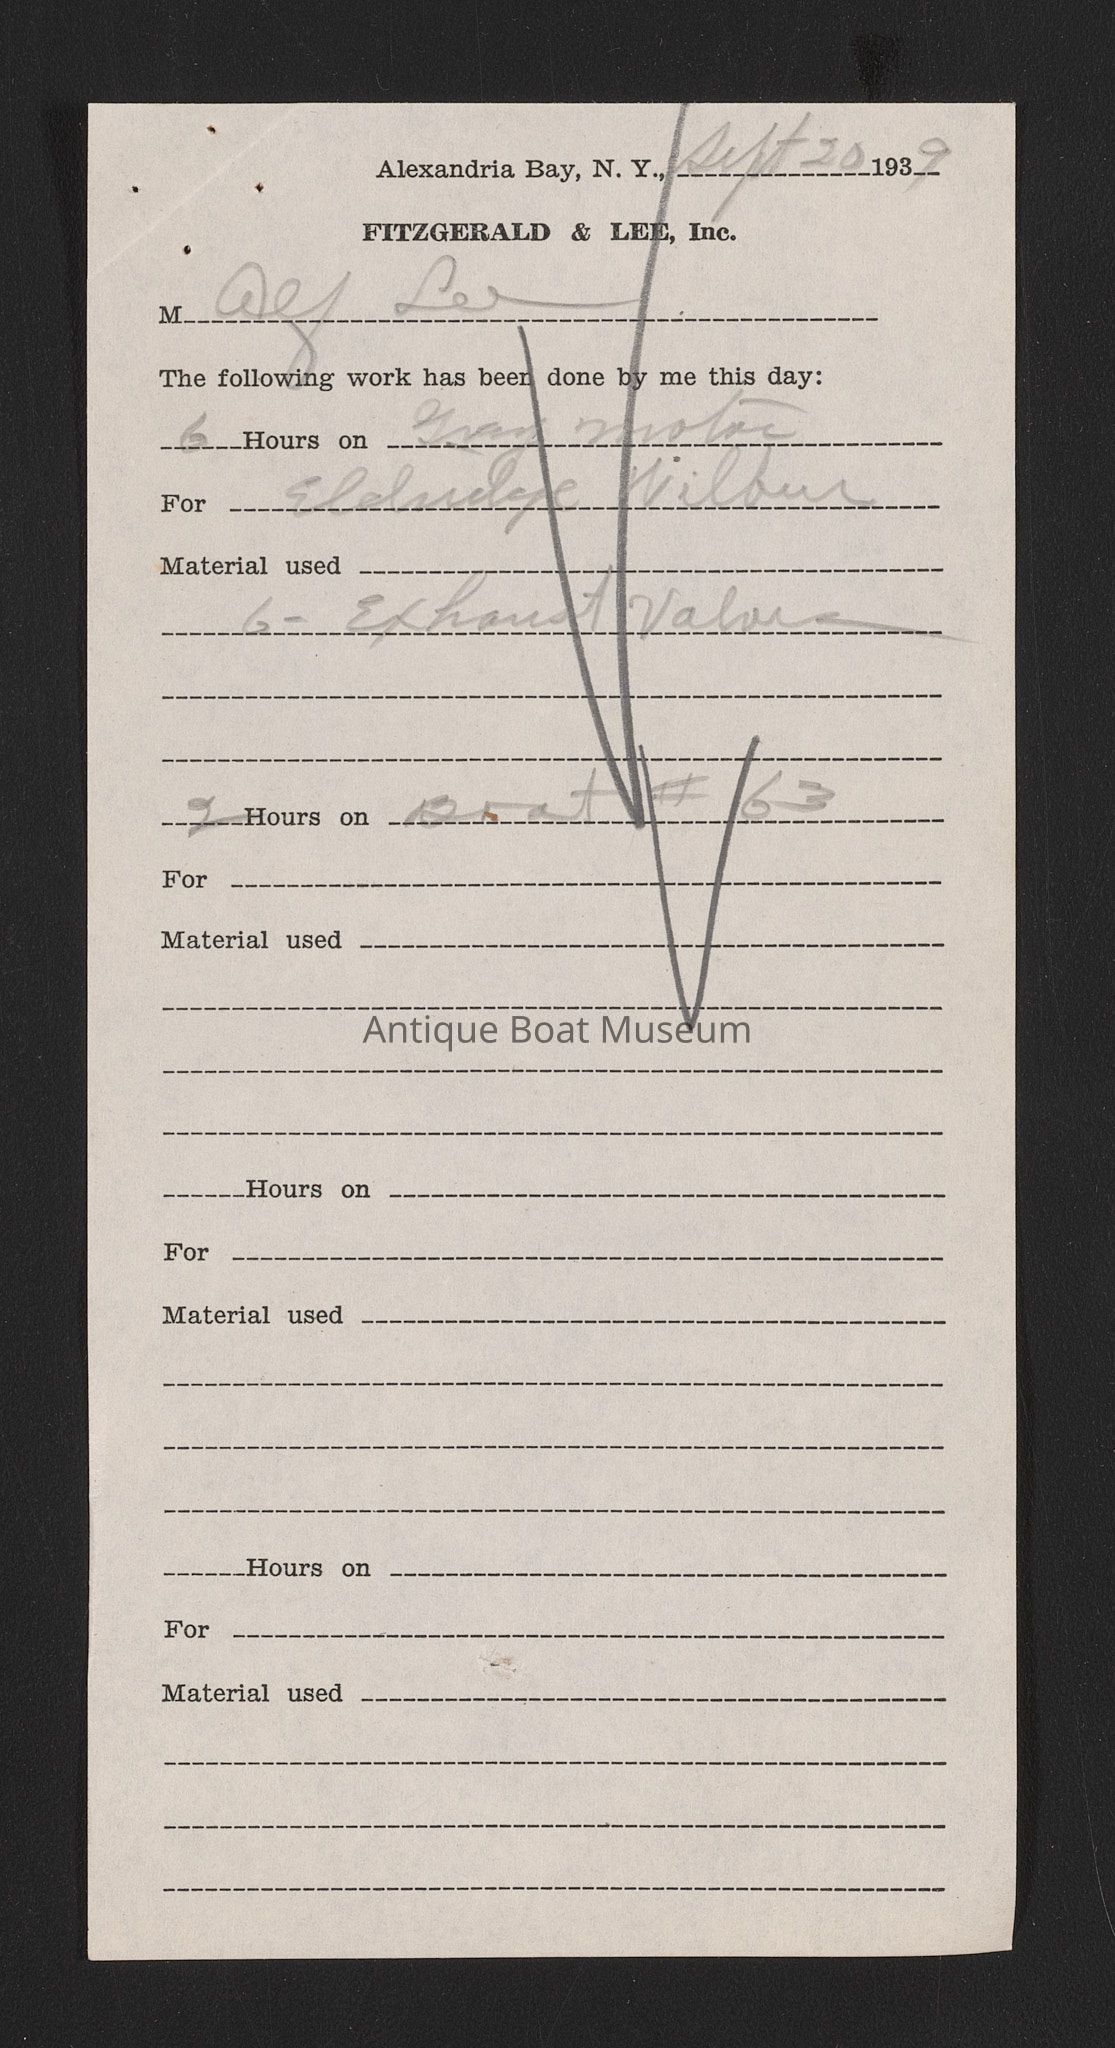 Alexandria Bay, N. Y., Sept 20 1939
FITZGERALD & LEE, Inc.
M Alf Lee
The following work has been done by me this day:
6 Hours on Gray motor
For Eldridge Wilbur
Material used
6- Exhaust Valves
2 Hours on Boat # 63
For
Material used
Antique Boat Museum
Hours on
For
Material used
Hours on
For
Material used